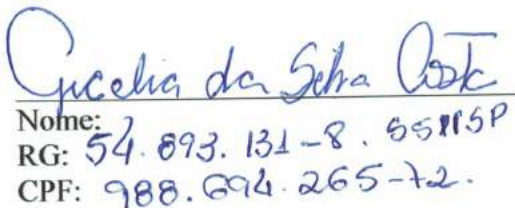 Gicelia da Silva Costa
Nome:
RG: 54.693.131-8. SSP/SP
CPF: 988.694.265-72.